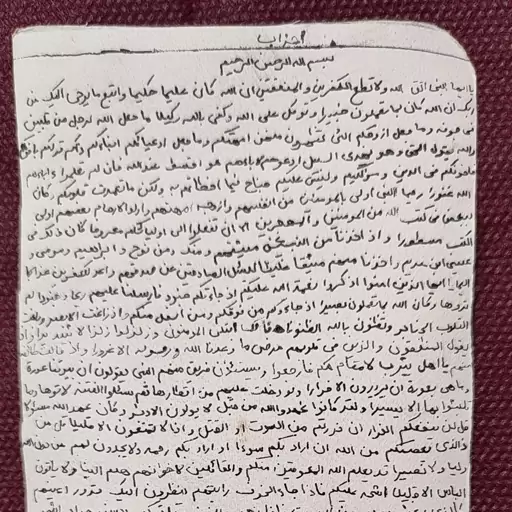 احزاب
بسم الله الرحمن الرحيم
يا ايها النبي اتق الله ولا تطع الكفرين والمنفقين ان الله كان عليما حكيما واتبع ما يوحى اليك من
ربك ان الله كان بما تعملون خبيرا وتوكل على الله وكفى بالله وكيلا ما جعل الله لرجل من قلبين
في جوفه وما جعل ازوجكم الئي تظهرون منهن امهتكم وما جعل ادعياكم ابناكم ذلكم قولكم بافو
والله يقول الحق وهو يهدي السبيل ادعوهم لابائهم هو اقسط عند الله فان لم تعلموا اباءهم
فاخونكم في الدين ومواليكم وليس عليكم جناح فيما اخطاتم به ولكن ما تعمدت قلوبكم وكان
الله غفورا رحيما النبي اولى بالمومنين من انفسهم وازوجه امهتهم واولوا الارحام بعضهم اولى
ببعض في كتب الله من المومنين والمهجرين الا ان تفعلوا الى اوليائكم معروفا كان ذلك في
الكتب مسطورا واذ اخذنا من النبيين ميثقهم ومنك ومن نوح وابراهيم وموسى و
عيسى ابن مريم واخذنا منهم ميثقا غليظا ليسئل الصادقين عن صدقهم واعد للكفرين عذابا
اليما يا ايها الذين امنوا اذكروا نعمة الله عليكم اذ جاءتكم جنود فارسلنا عليهم ريحا وجنودا لم
تروها وكان الله بما تعملون بصيرا اذ جاءوكم من فوقكم ومن اسفل منكم واذ زاغت الابصر وبلغت
القلوب الحناجر وتظنون بالله الظنونا هنالك ابتلي المومنون وزلزلوا زلزالا شديدا واذ
يقول المنفقون والذين في قلوبهم مرض ما وعدنا الله ورسوله الا غرورا واذ قالت طائفة
منهم يا اهل يثرب لا مقام لكم فارجعوا ويستئذن فريق منهم النبي يقولون ان بيوتنا عورة
وما هي بعورة ان يريدون الا فرارا ولو دخلت عليهم من اقطارها ثم سئلوا الفتنة لاتوها وما
تلبثوا بها الا يسيرا ولقد كانوا عهدوا الله من قبل لا يولون الادبر وكان عهد الله مسئولا
قل لن ينفعكم الفرار ان فررتم من الموت او القتل واذا لا تمتعون الا قليلا قل من
ذا الذي يعصمكم من الله ان اراد بكم سوءا او اراد بكم رحمة ولا يجدون لهم من دون الله
وليا ولا نصيرا قد يعلم الله المعوقين منكم والقائلين لاخوانهم هلم الينا ولا ياتون
الباس الا قليلا اشحة عليكم فاذا جاء الخوف رايتهم ينظرون اليك تدور اعينهم